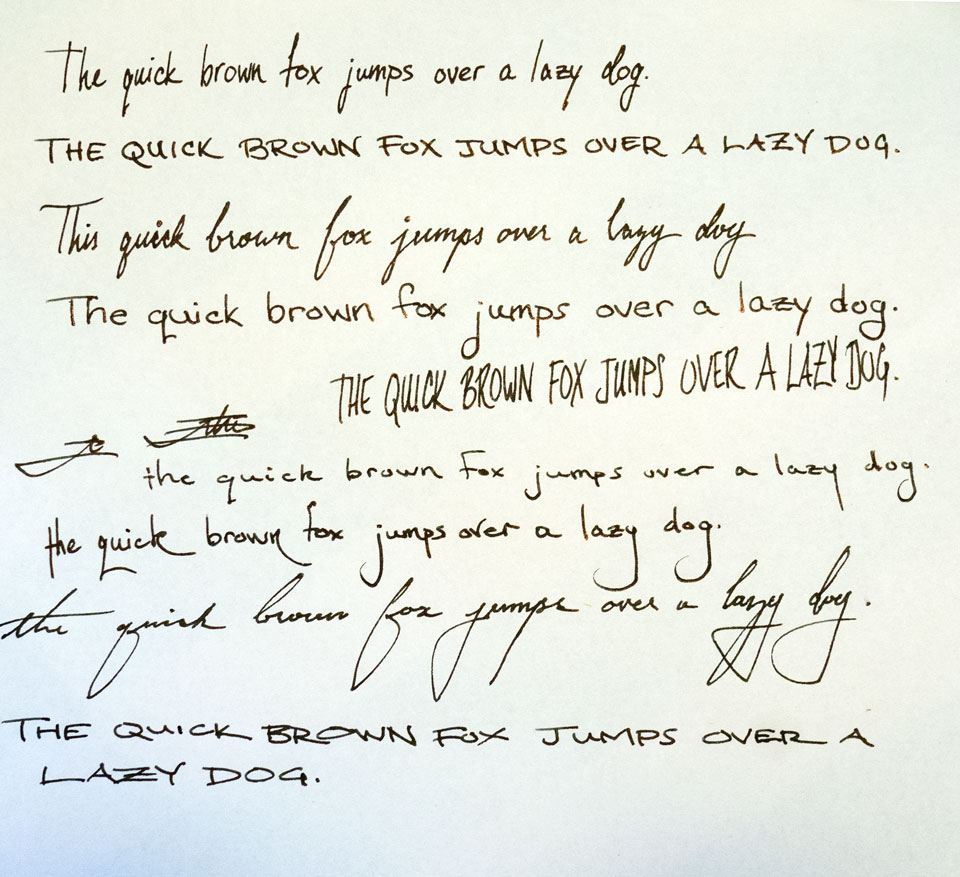 The quick brown fox jumps over a lazy dog.
THE QUICK BROWN FOX JUMPS OVER A LAZY DOG.
This quick brown fox jumps over a lazy dog
The quick brown fox jumps over a lazy dog.
THE QUICK BROWN FOX JUMPS OVER A LAZY DOG.
the quick brown Fox jumps over a lazy dog.
the quick brown fox jumps over a lazy dog.
the quick brown fox jumps over a lazy dog.
THE QUICK BROWN FOX JUMPS OVER A
LAZY DOG.